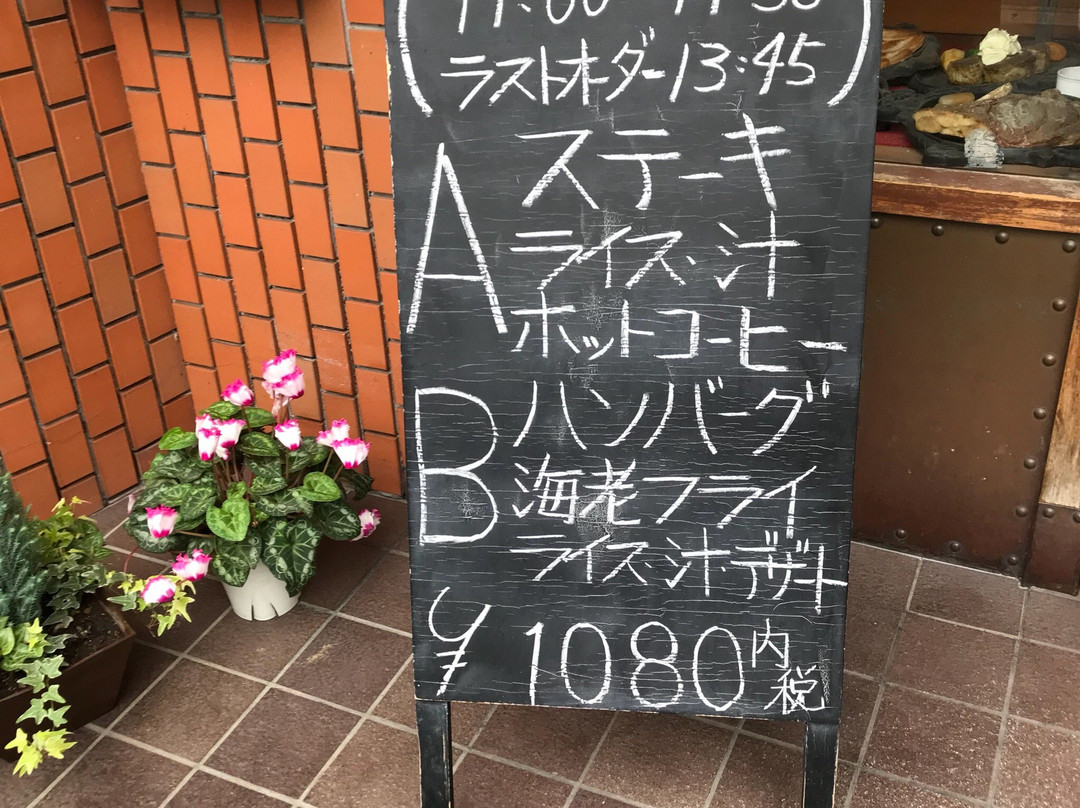 ラストオーダー13:45
A ステーキ
ライス・汁
ホットコーヒー
B ハンバーグ
海老フライ
ライス・汁・デザート
¥1080内税